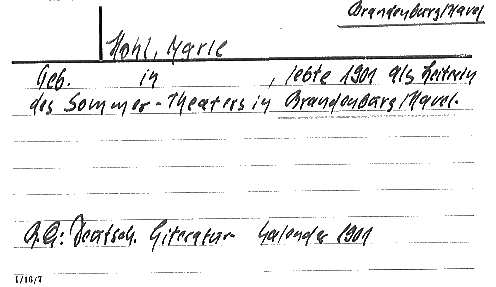 Brandenburg/Havel
Hohl, Marie
Geb. in , lebte 1901 als Leiterin
des Sommer-Theaters in Brandenburg/Havel.
Qu: Deutsch. Literatur-Kalender 1901
1/16/7